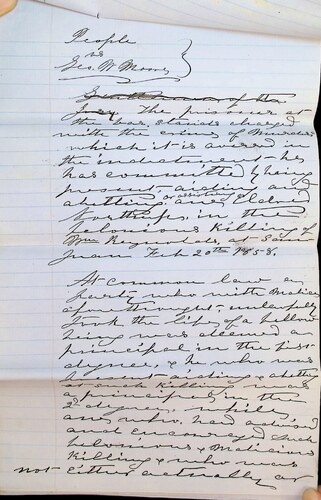 People
vs
Geo. W Moore
Gentlemen of the
Jury The prisoner at
the bar stands charged
with the crime of Murder
which it is averred in
the indictment he
has committed by being
present aiding and
or assisting
abetting, one Eldred
Northrope, in the
felonious killing of
Wm Reynolds, at San
Juan Feb 20th 1858.
At common law a
party who with Malice
aforethought unlawfully
took the life of a fellow
being was deemed a
principal in the first
degree, & he who was
present aiding & abetting
such killing was
a principal in the
2d degree, while,
one who had advised
and encouraged such
felonious & Malicious
killing & who was
not either actually or